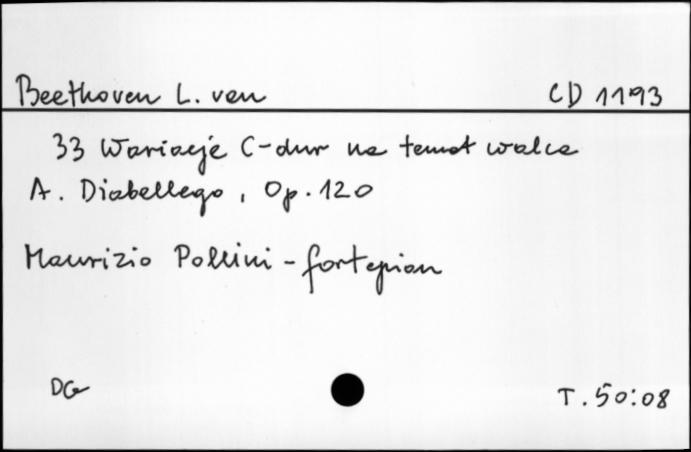 Beethoven L. van CD 1193
33 Wariacje C-dur na temat walca
A. Diabellego, Op. 120
Maurizio Pollini - fortepian
DG T. 50:08